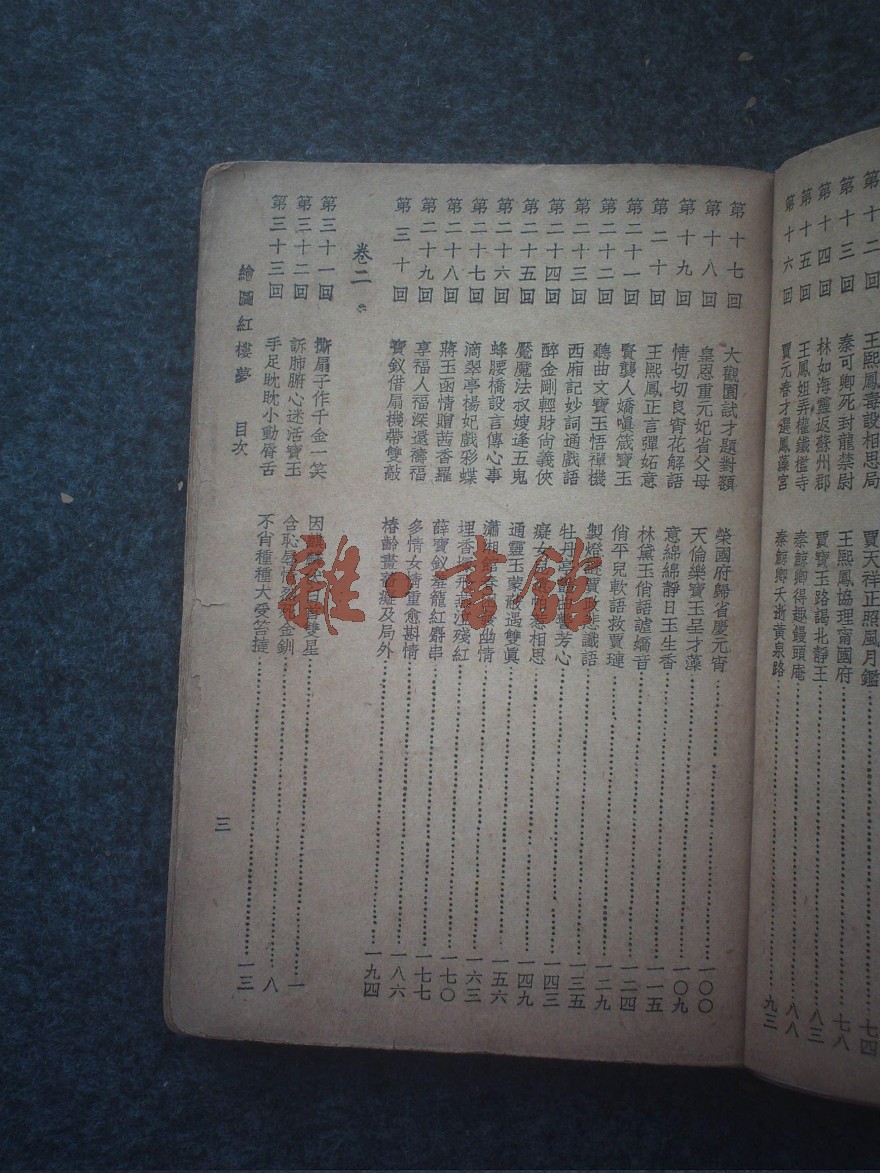 第十二回 王熙鳳毒設相思局 賈天祥正照風月鑑 七四
第十三回 秦可卿死封龍禁尉 王熙鳳協理甯國府 七八
第十四回 林如海靈返蘇州郡 賈寶玉路謁北靜王 八三
第十五回 王鳳姐弄權鐵檻寺 秦鯨卿得趣饅頭庵 八八
第十六回 賈元春才選鳳藻宮 秦鯨卿夭逝黃泉路 九三
第十七回 大觀園試才題對額 榮國府歸省慶元宵 一〇〇
第十八回 皇恩重元妃省父母 天倫樂寶玉呈才藻 一〇九
第十九回 情切切良宵花解語 意綿綿靜日玉生香 一一五
第二十回 王熙鳳正言彈妬意 林黛玉俏語謔嬌音 一二四
第二十一回 賢襲人嬌嗔箴寶玉 俏平兒軟語救賈璉 一二九
第二十二回 聽曲文寶玉悟禪機 製燈謎賈政悲讖語 一三五
第二十三回 西廂記妙詞通戲語 牡丹亭芳心 一四三
第二十四回 醉金剛輕財尚義俠 癡女相思 一四九
第二十五回 魘魔法叔嫂逢五鬼 通靈玉蒙蔽遇雙眞 一五六
第二十六回 蜂腰橋設言傳心事 瀟湘幽情 一六三
第二十七回 滴翠亭楊妃戲彩蝶 埋香殘紅 一七〇
第二十八回 蔣玉函情贈茜香羅 薛寶釵羞籠紅麝串 一七七
第二十九回 享福人福深還禱福 多情女情重愈斟情 一八六
第三十回 寶釵借扇機帶雙敲 椿齡畫薔癡及局外 一九四
卷二
第三十一回 撕扇子作千金一笑 因雙星 一
第三十二回 訴肺腑心迷活寶玉 含恥金釧 八
第三十三回 手足眈眈小動脣舌 不肖種種大受笞撻 一三
繪圖紅樓夢 目次
三
雜·書館